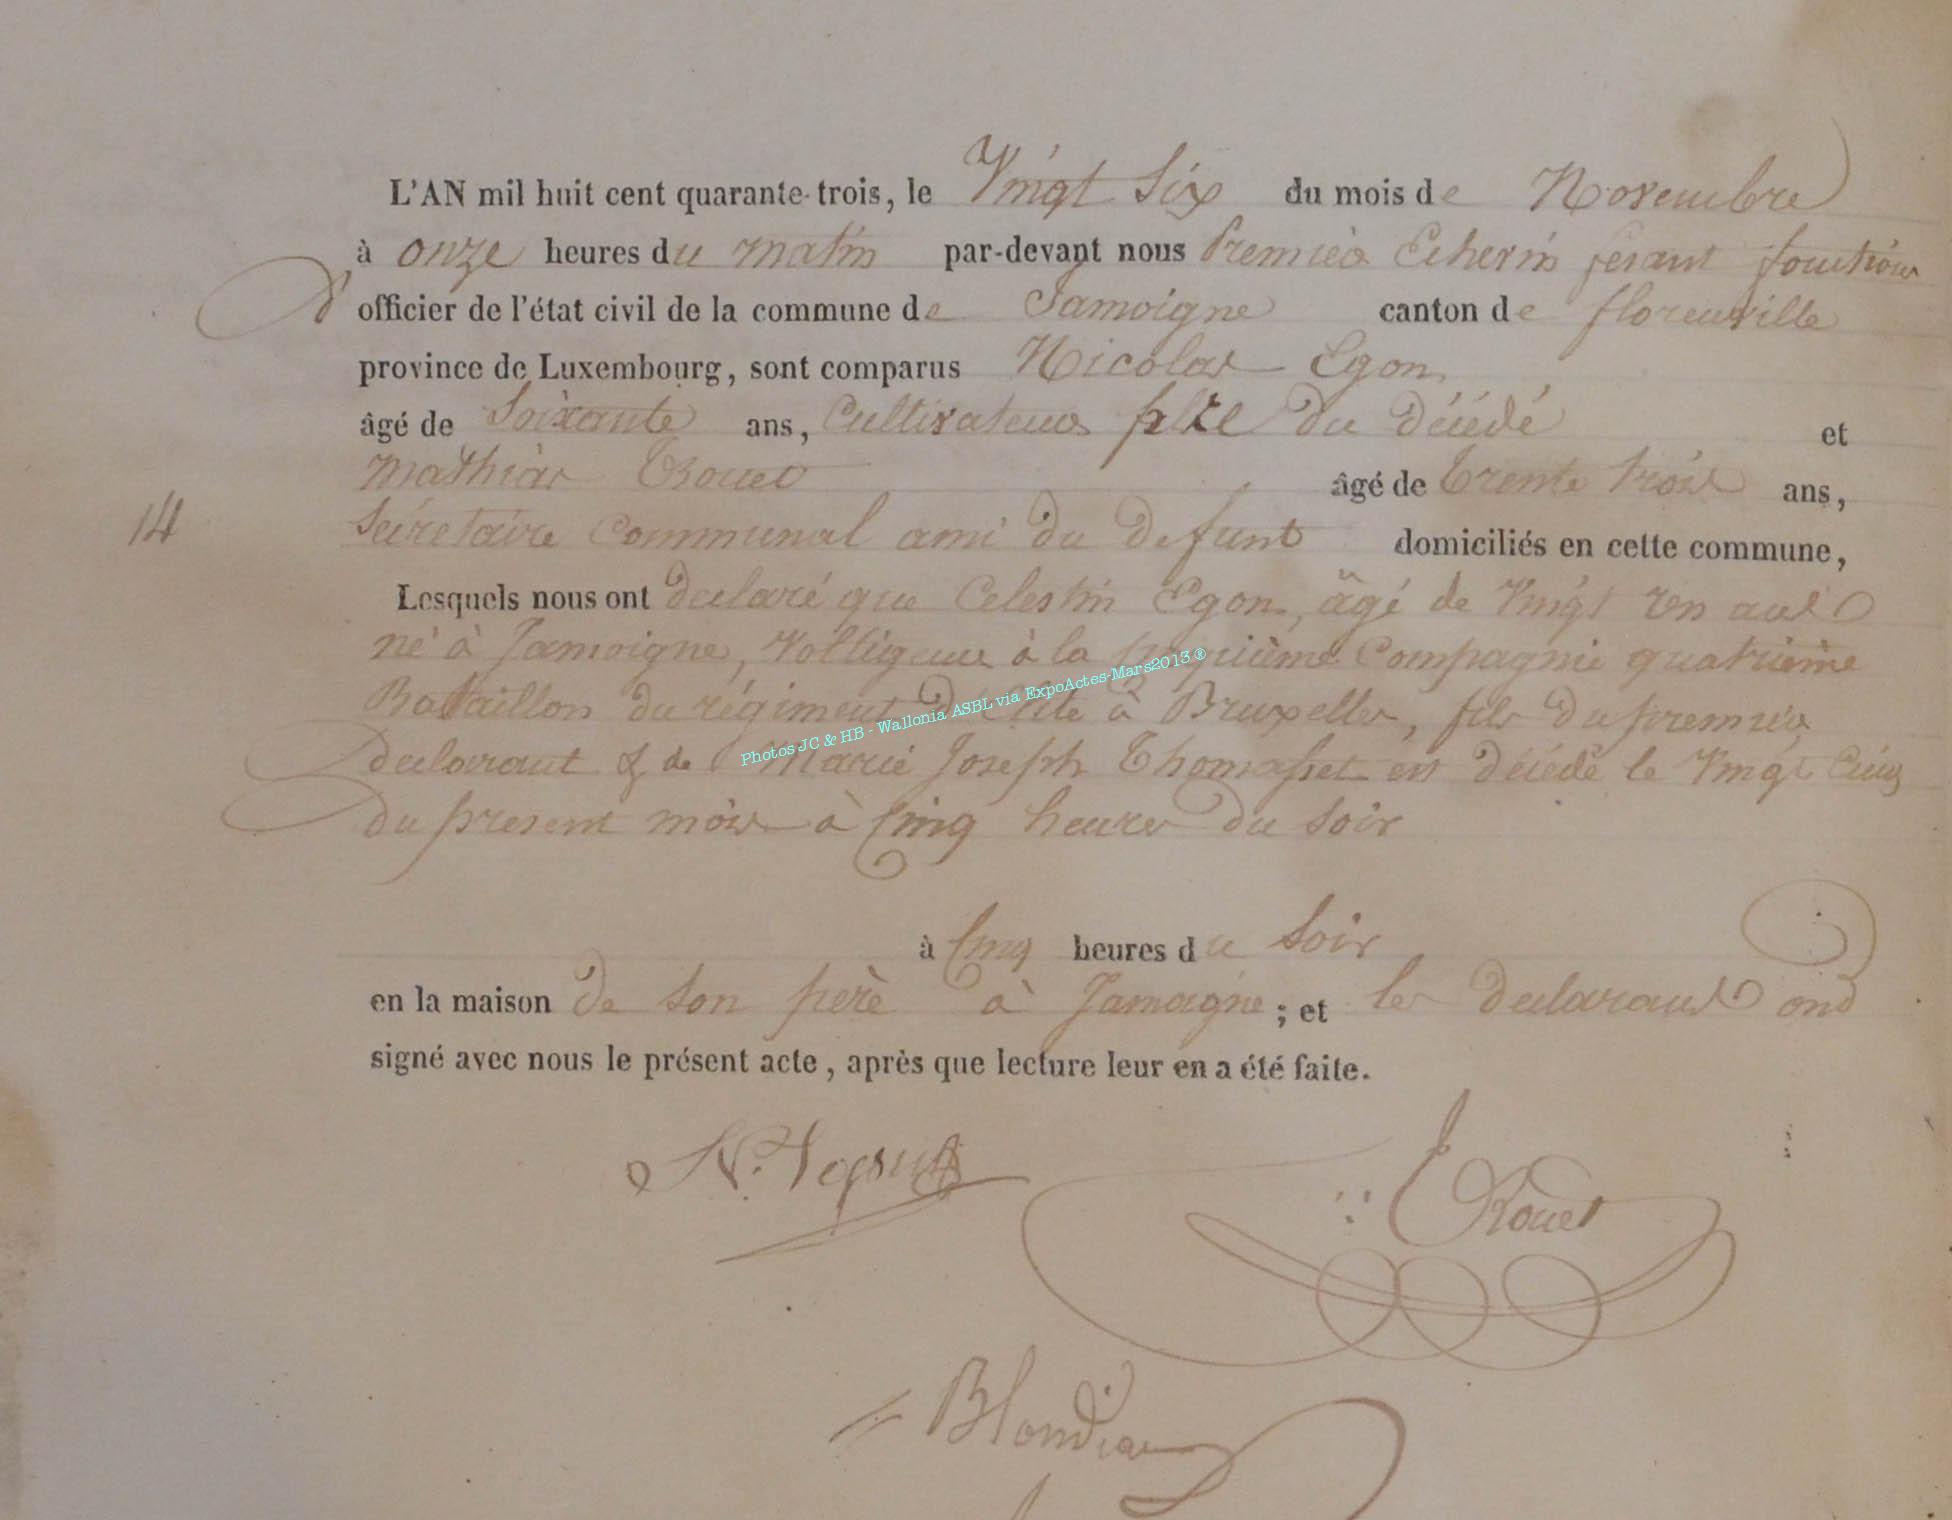 L'AN mil huit cent quarante-trois, le Vingt Six du mois de Novembre
à onze heures du matin par-devant nous Premier Echevin fesant fonction
d'officier de l'état civil de la commune de Jamoigne canton de florenville
province de Luxembourg, sont comparus Nicolas Egon
âgé de Soixante ans, Cultivateur père du décédé et
Mathias Trouet âgé de trente trois ans,
14 Sécretaire Communal ami du defunt domiciliés en cette commune,
Lesquels nous ont declaré que Celestin Egon, âgé de Vingt un ans
né à Jamoigne, Voltigeur à la Compagnie quatrième
Bataillon du régiment d'élite à Bruxelles, fils du premier
declarant & de Marie Joseph Thomasset est décédé le Vingt Cinq
du present mois à Cinq heures du Soir
Photos JC & HB - Wallonia ASBL via ExpoActes-Mars2013 ®
à Cinq heures du Soir
en la maison de son père à Jamoigne ; et les declarans ont
signé avec nous le présent acte, après que lecture leur en a été faite.
Trouet